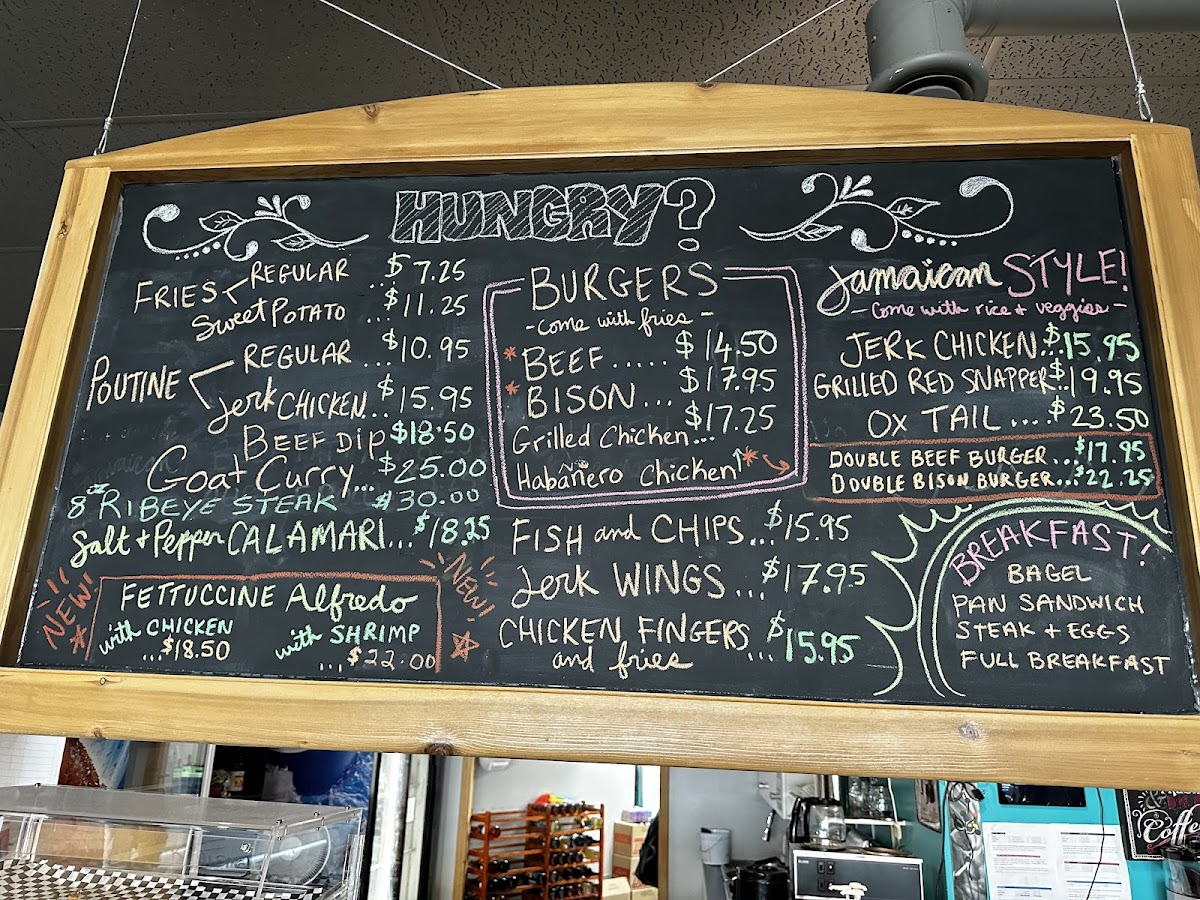 HUNGRY?
FRIES
REGULAR .. $7.25
Sweet POTATO ... $11.25
POUTINE
REGULAR ... $10.95
Jerk CHICKEN.. $15.95
BEEF DIP $18.50
Goat Curry... $25.00
8oz RIBEYE STEAK $30.00
Salt + Pepper CALAMARI... $18.25
NEW!
FETTUCCINE Alfredo
with CHICKEN
...$18.50
with SHRIMP
...$22.00
NEW!
BURGERS
- come with fries -
* BEEF..... $14.50
* BISON... $17.95
Grilled Chicken... $17.25
Habañero Chicken ↑*
FISH and CHIPS... $15.95
Jerk WINGS... $17.95
CHICKEN FINGERS
and fries ... $15.95
Jamaican STYLE!
- Come with rice + veggies -
JERK CHICKEN... $15.95
GRILLED RED SNAPPER.. $19.95
OX TAIL .... $23.50
DOUBLE BEEF BURGER... $17.95
DOUBLE BISON BURGER... $22.25
BREAKFAST!
BAGEL
PAN SANDWICH
STEAK + EGGS
FULL BREAKFAST
Coffee